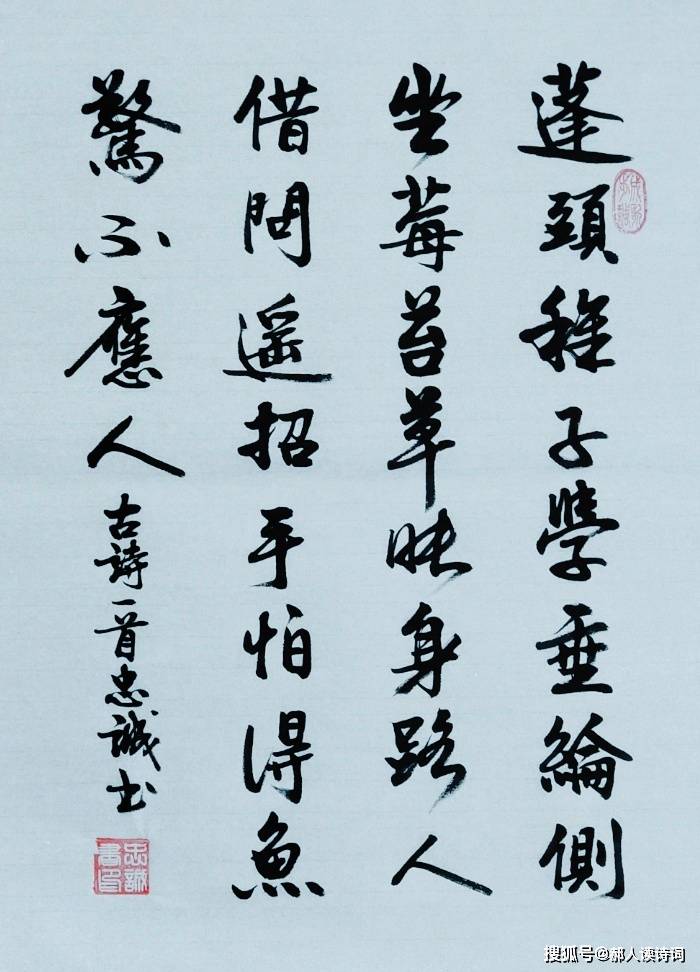 蓬頭稚子學垂綸側
坐莓苔草映身路人
借問遥招手怕得魚
驚不應人
古詩一首忠誠书
忠誠書印
搜狐号@郝人读诗词